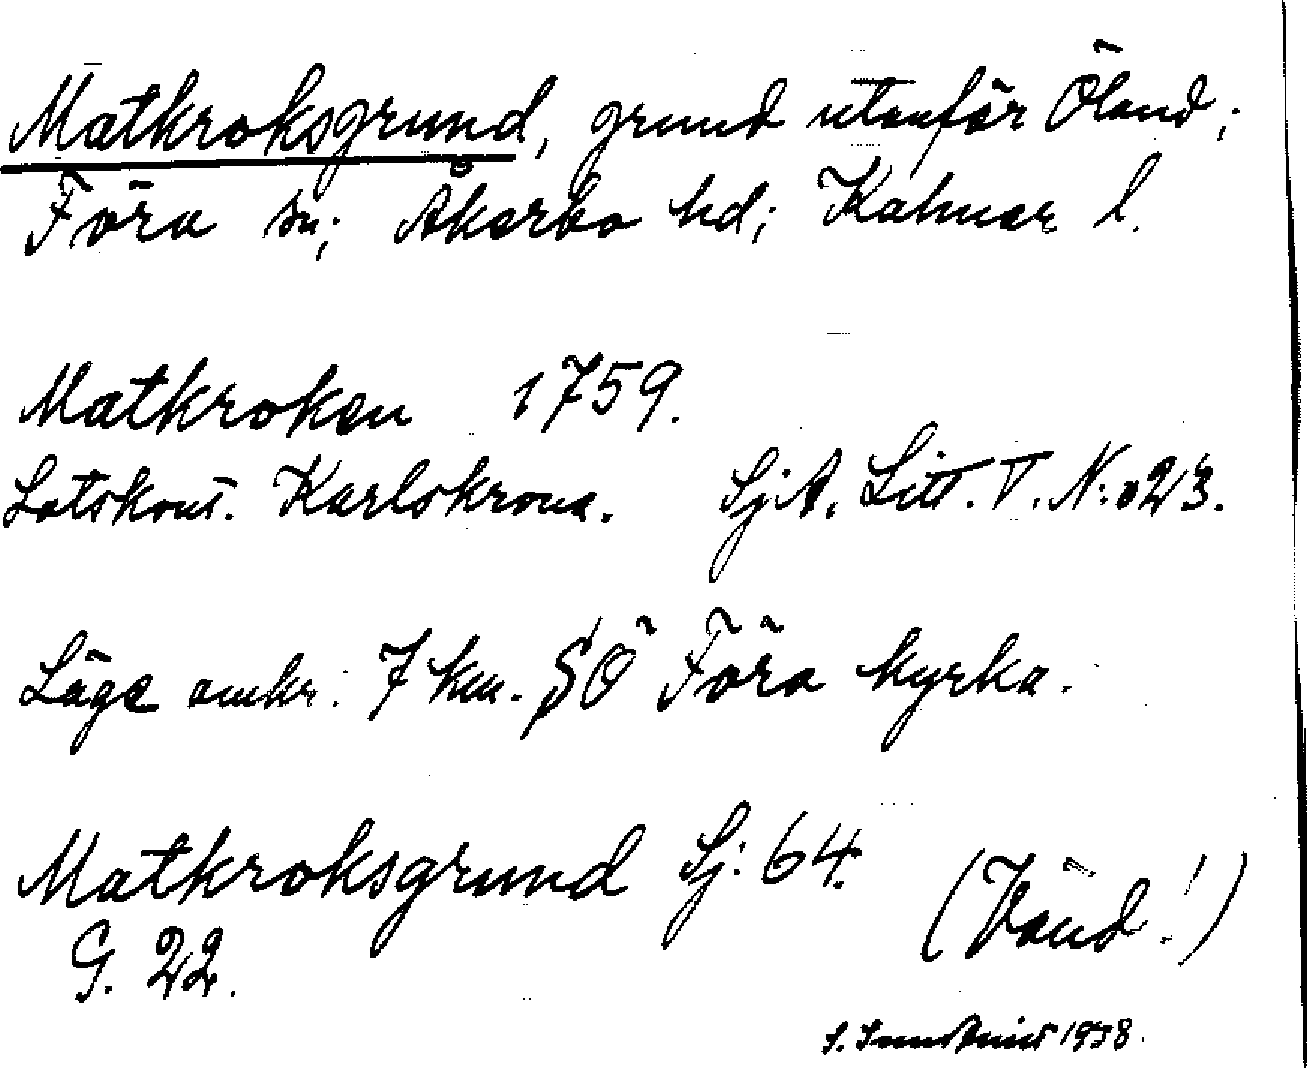 Matkroksgrund, grund utanför Öland;
Föra sn; Åkerbo hd; Kalmar l.
Matkroken 1759.
Lotskont. Karlskrona. SjA. Litt. T. N:o 23.
Läge omkr. 7 km. SÖ Föra kyrka.
Matkroksgrund Sj. 64. (Vänd!)
G. 22.
S. 1938.